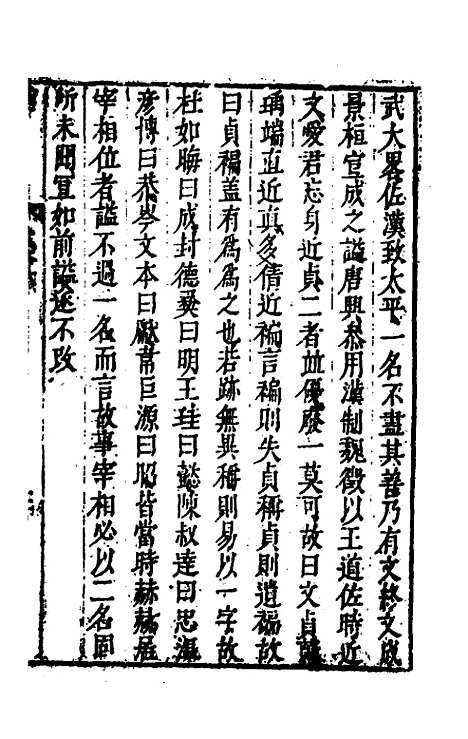 武大畧佐漢致太平一名不盡其善乃有文終文成
景桓宣成之謚唐興叅用漢制魏徵以王道佐時近
文愛君忘身近貞二者並優廢一莫可故曰文貞蕭
瑀端直近貞多猜近褊言褊則失貞稱貞則遺褊故
曰貞褊盖有為為之也若跡無異稱則易以一字故
杜如晦曰成封德彝曰明王珪曰懿陳叔達曰忠温
彦博曰恭岑文本曰憲韋巨源曰昭皆當時赫赫居
宰相位者謚不過一名而言故事宰相必以二名固
所未聞宜如前謚遂不改